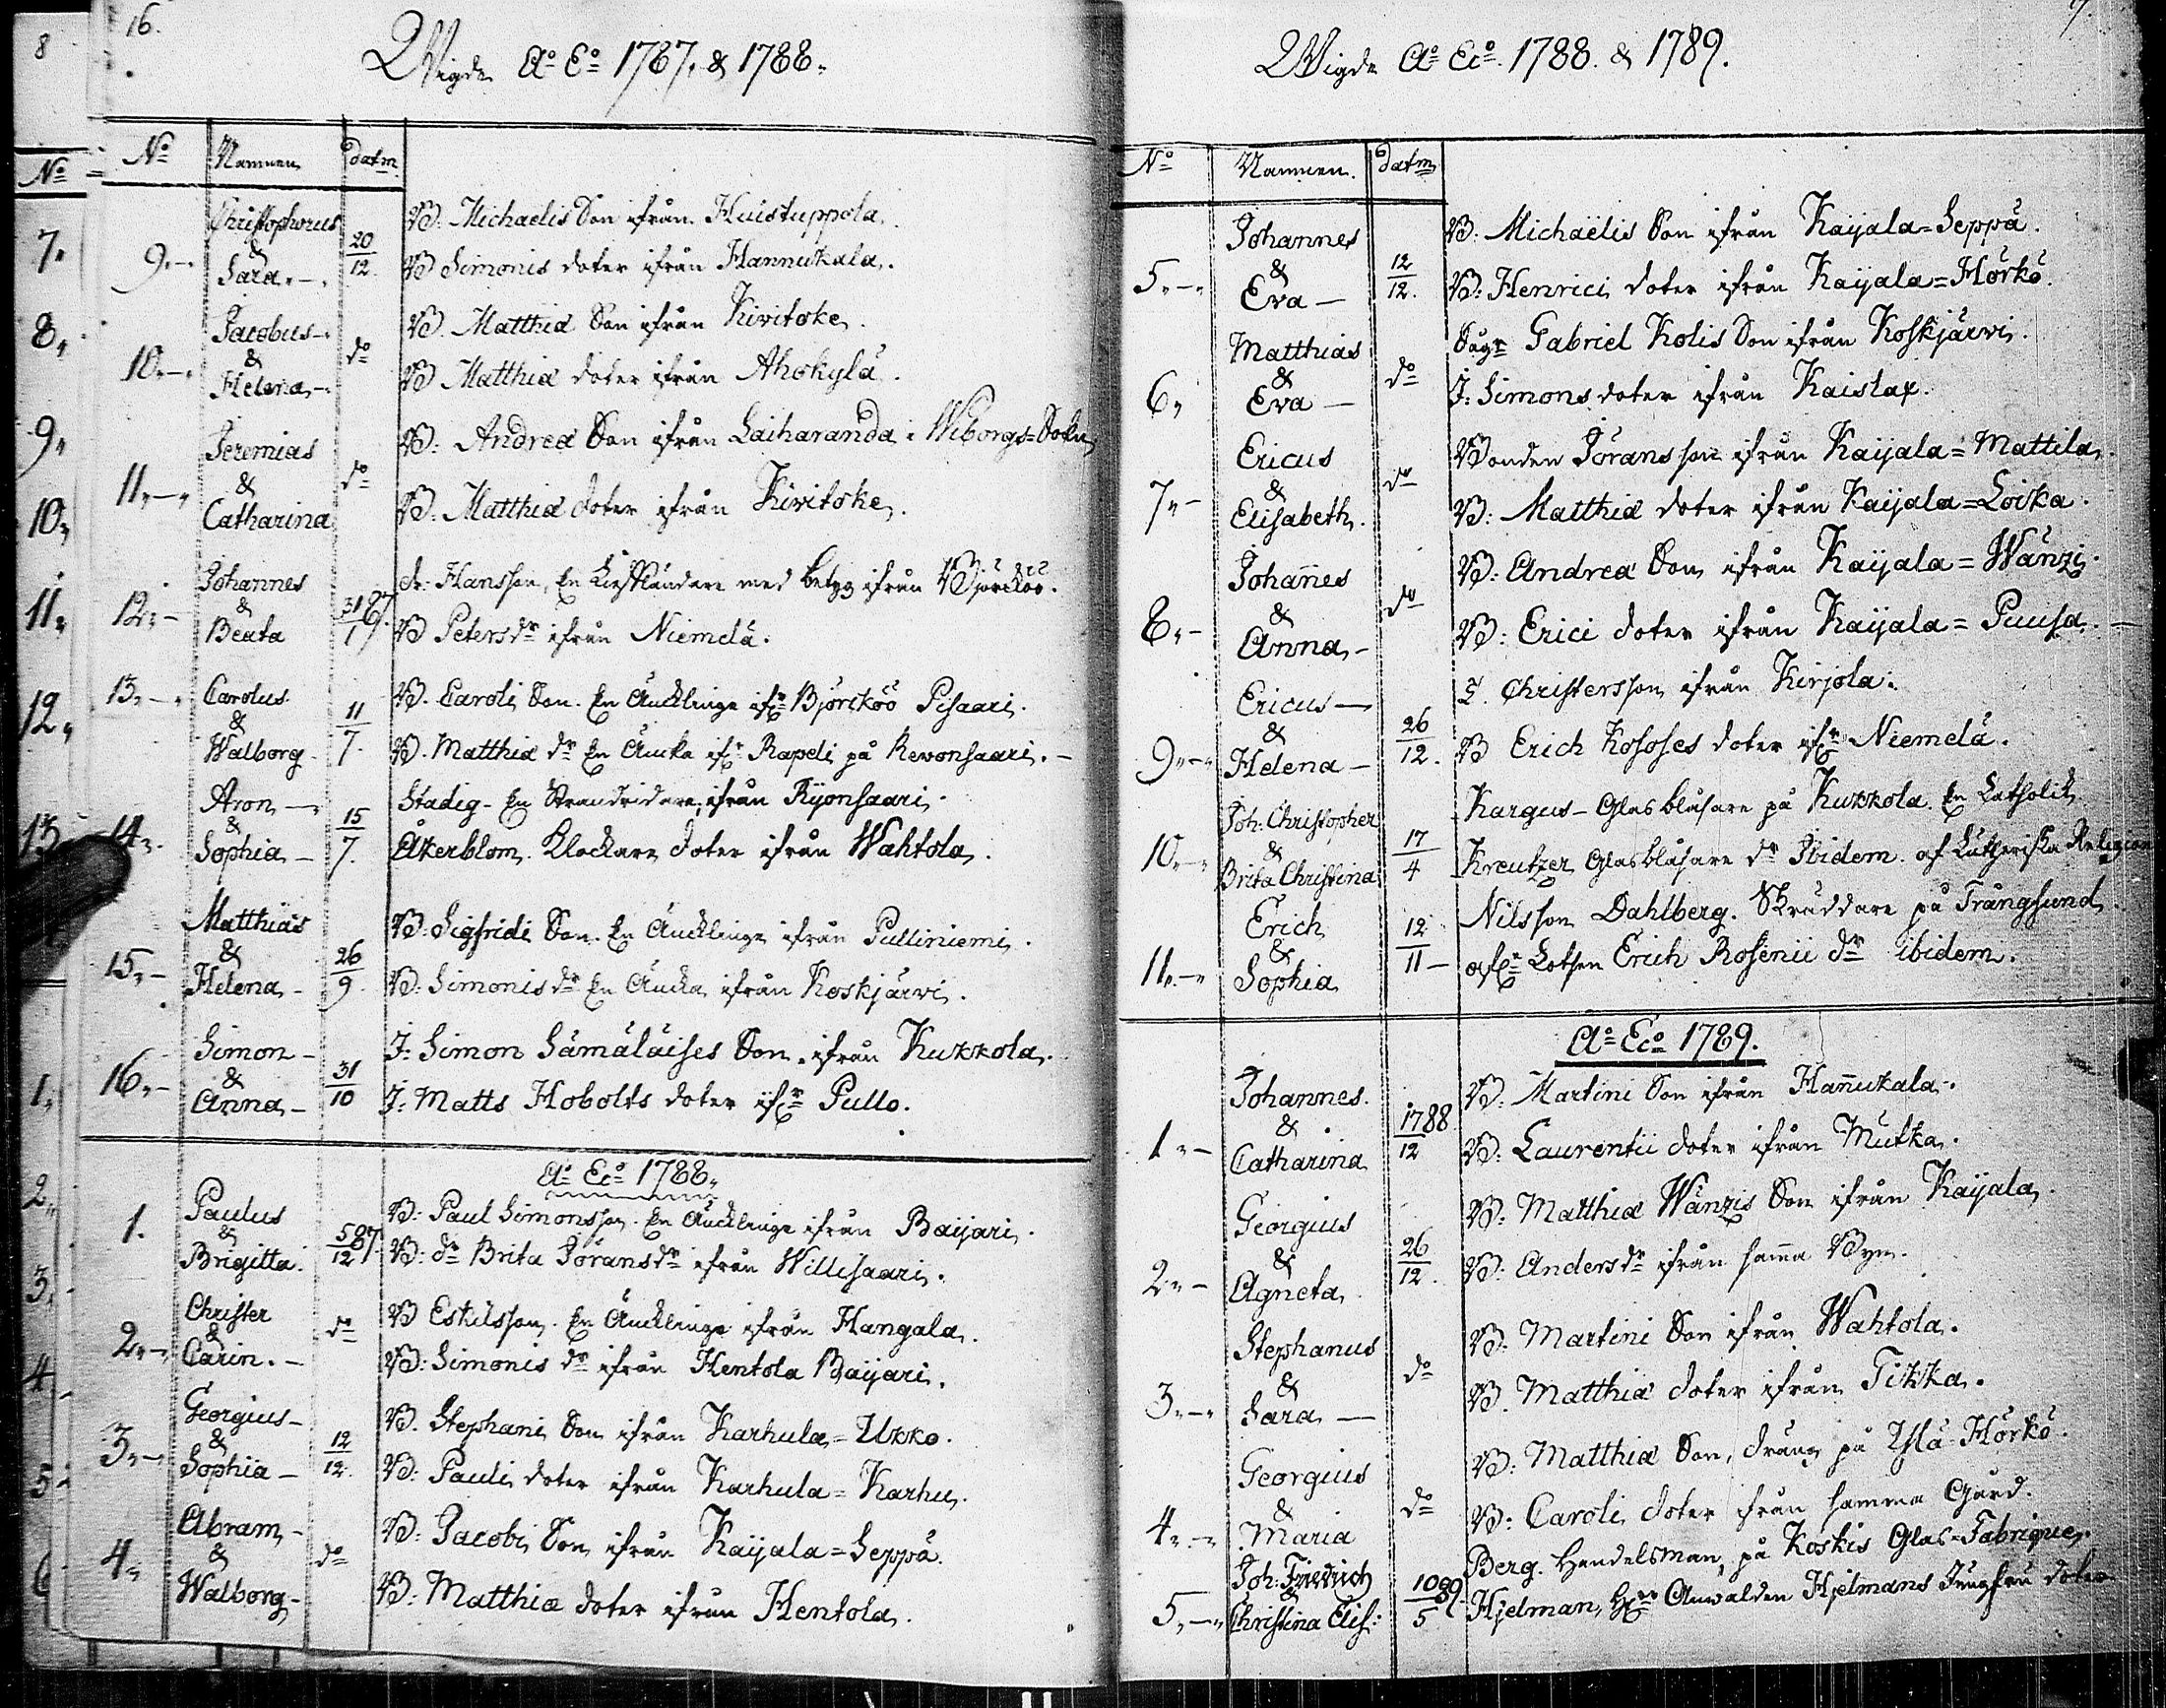 8
16.
Wigde Aº Eº 1787, & 1788.
Nº
Nº Namnen datm
7.
9.
Christophorus & Sara
20/12.
B: Michaelis Son ifrån Huistuppola.
B Simonis doter ifrån Hannukala.
8.
10.
Jacobus & Helena
dº
B Matthiæ Son ifrån Kivitoke.
B Matthiæ doter ifrån Ahokylä.
9.
11.
Jeremias & Catharina
dº
B: Andreæ Son ifrån Laiharanda i Wiborgs=Sokn
B: Matthiæ doter ifrån Kivitoke.
10.
11.
12.
Johannes & Beata
31/1 87.
dr: Hansson, En Liefländare med betyg ifrån Björcköö.
B Petersdr ifrån Niemelä.
12.
13.
Carolus & Walborg
11/7.
B. Caroli Son. En Äncklinge ifr Björcköö Pisaari.
B. Matthiæ dr En Äncka ifr Rapeli på Revonsaari.
13.
14.
Aron & Sophia
15/7.
Stadig - En Strandridare, ifrån Ryönsaari.
Åkerblom. Klockare doter ifrån Wahtola.
15.
Matthias & Helena
26/9
B: Sigfridi Son. En Äncklinge ifrån Pulliniemi.
B: Simonis dr En Äncka ifrån Koskjärvi.
1.
16.
Simon & Anna
31/10
J: Simon Sämäläises Son ifrån Kukkola.
J: Matts Hobolts doter ifr Pullo.
Aº Ecº 1788.
2.
1.
Paulus & Brigitta
5/12 87.
B: Paul Simonsson. En Äncklinge ifrån Baijari.
B: dr Brita Göransdr ifrån Willisaari.
3.
2.
Christer & Carin.
dº
B Eskilsson. En Äncklinge ifrån Hangala.
B: Simonis dr ifrån Hentola Baijari.
4.
3.
Georgius & Sophia
12/12.
B. Stephani Son ifrån Karhula=Ukko.
B: Pauli doter ifrån Karhula=Karhu.
5.
4.
Abram & Walborg
dº
B: Jacobi Son ifrån Kaijala=Seppä.
B: Matthiæ doter ifrån Hentola.
6
Wigde Aº Ecº 1788. & 1789.
Nº Namnen. datm
5.
Johannes & Eva
12/12.
B: Michaëlis Son ifrån Kaijala=Seppä.
B: Henrici doter ifrån Kaijala=Hörkö.
6.
Matthias & Eva
dº
Gabriel Kolis Son ifrån Koskjärvi.
J: Simons doter ifrån Kaislax.
7.
Ericus & Elisabeth.
dº
Bonden Göransson ifrån Kaijala=Mattila.
B: Matthiæ doter ifrån Kaijala=Loika.
8.
Johannes & Anna
dº
B: Andreæ Son ifrån Kaijala=Wänzi.
B: Erici doter ifrån Kaijala=Puusa.
9.
Ericus & Helena
26/12.
J. Christersson ifrån Kirjola.
B Erich Kososes doter ifr Niemelä.
10.
Joh: Christopher & Brita Christina
17/4
Kargus - Glasblåsare på Kukkola. En Catholik
Kreutzer Glasblåsare dr Ibidem. af Lutheriska Religion
11.
Erich & Sophia
12/11
Nilsson Dahlberg. Skräddare på Trångsund.
Lotsen Erich Rosenii dr ibidem.
Aº Ecº 1789.
1.
Johannes. & Catharina
17/12 88
B: Martini Son ifrån Hannukala.
B: Laurentii doter ifrån Mutka.
2.
Georgius & Agneta
26/12.
B: Matthiæ Wänzis Son ifrån Kaijala.
B: Andersdr ifrån samma By.
3.
Stephanus & Sara
dº
B. Martini Son ifrån Wahtola.
B. Matthiæ doter ifrån Tikka.
4.
Georgius & Maria
dº
B: Matthiæ Son, dräng på Ylä-Hörkö.
B: Caroli doter ifrån samma Gård.
5.
Joh: Friedrich & Christina Elis:
10/5 89.
Berg. Handelsman, på Koskis Glas=Fabrique.
Hjelman, Anwalden Hjelmans Jungfru doter